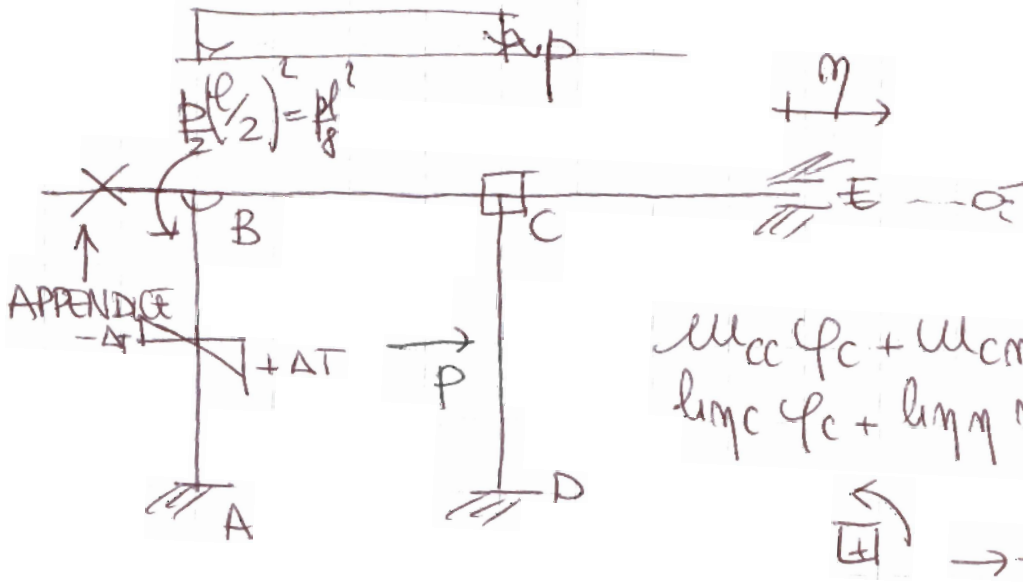 p
η
p/2 (ℓ/2)² = pℓ²/8
B
C
E
APPENDICE
-ΔT
+ΔT
P
A
D
m_cc φ_c + m_cη
h_ηc φ_c + h_ηη η
+